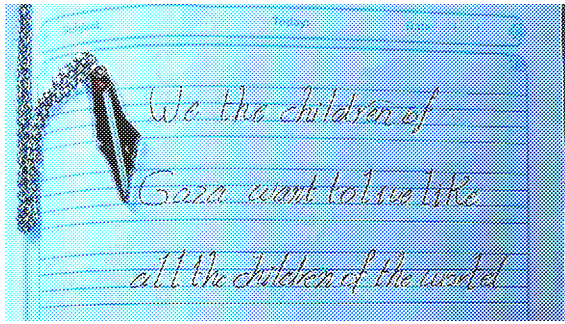 Subject: Today: Date:
We the children of
Gaza want to live like
all the children of the world